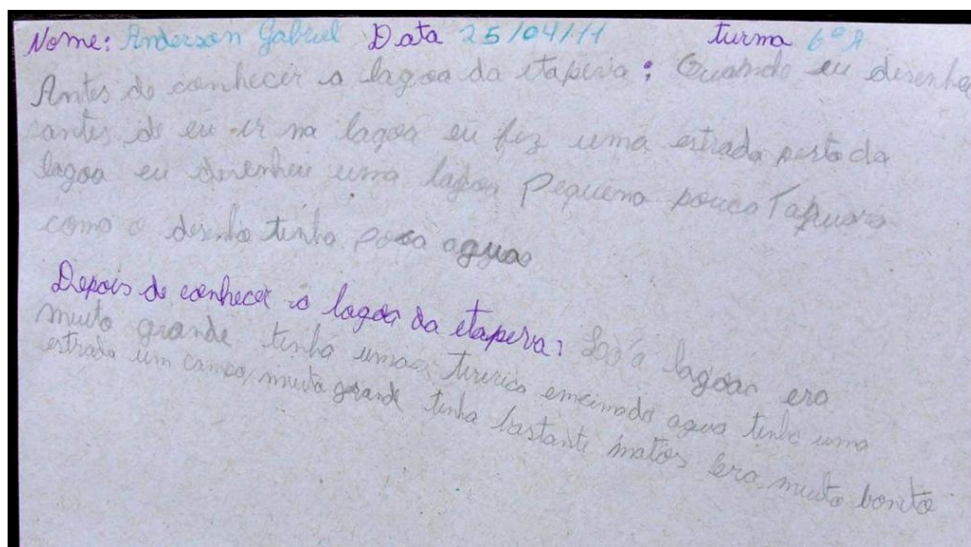 Nome: Anderson Gabriel Data 25/04/11 turma 6º A
Antes de conhecer a lagoa da itapeva: Quando eu desenha
antes de eu ir na lagoa eu fiz uma estrada perto da
lagoa eu desenhei uma lagoa Pequena pouca
como o desenho tinha poca agua
Depois de conhecer a lagoa da itapeva: a lagoa era
muito grande tinha umas tiririca emcimada agua tinha uma
estrada um campo muito grande tinha bastante matos era muito bonito